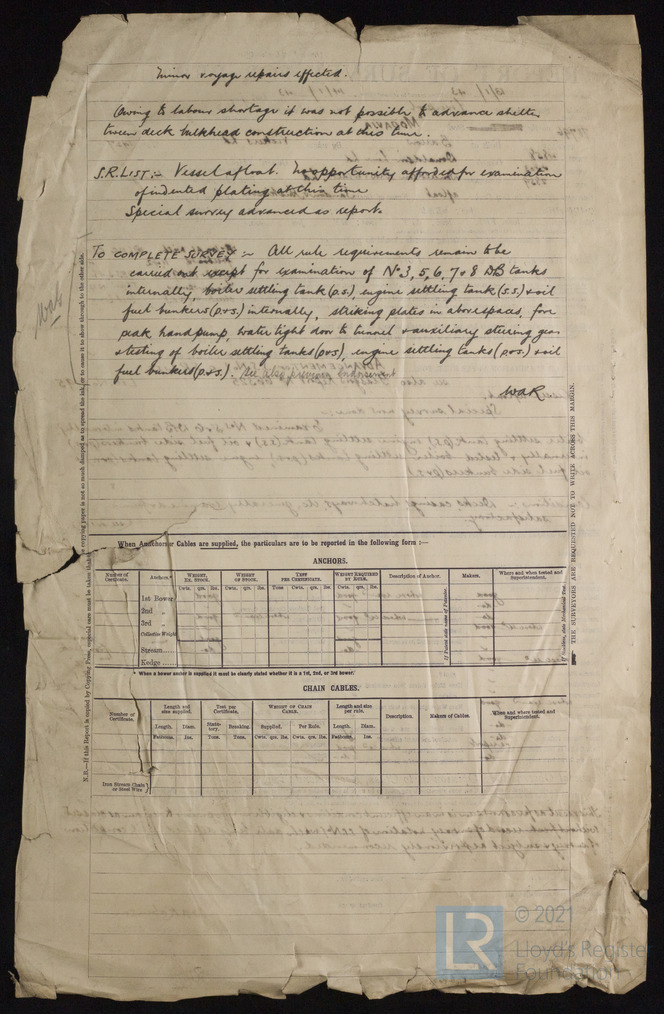 Minor voyage repairs effected.
Owing to labour shortage it was not possible to advance shelter
tween deck bulkhead construction at this time.
S.R. LIST:- Vessel afloat. No opportunity afforded for examination
of indented plating at this time
Special survey advanced as report.
TO COMPLETE SURVEY:- All rule requirements remain to be
carried out except for examination of No 3, 5, 6, 7 & 8 DB tanks
internally, boiler settling tank (p.s.), engine settling tank (s.s.) & oil
fuel bunkers (p.&s.) internally, striking plates in above spaces, fore
peak hand pump, water tight door to tunnel & auxiliary steering gear
& testing of boiler settling tanks (p&s), engine settling tanks (p&s.) & oil
fuel bunkers (p.&s.). See also previous endorsement
WAR
When Anchors or Cables are supplied, the particulars are to be reported in the following form :—
ANCHORS.
Number of Certificate. Anchors.* WEIGHT, EX. STOCK. WEIGHT OF STOCK. TEST PER CERTIFICATE. WEIGHT REQUIRED BY RULE. Description of Anchor. Makers. Where and when tested and Superintendent.
Cwts. qrs. lbs. Cwts. qrs. lbs. Tons Cwts. qrs. lbs. Cwts. qrs. lbs.
1st Bower
2nd „
3rd „
Collective Weight
Stream.....
Kedge.....
If Patent state name of Patentee.
If Stockless, state Mechanical Test.
* When a bower anchor is supplied it must be clearly stated whether it is a 1st, 2nd, or 3rd bower.
CHAIN CABLES.
Number of Certificate. Length and size supplied. Test per Certificate. WEIGHT OF CHAIN CABLE. Length and size per rule. Description. Makers of Cables. Where and when tested and Superintendent.
Length. Diam. Statutory. Breaking. Supplied. Per Rule. Length. Diam.
Fathoms. Ins. Tons. Tons. Cwts. qrs. lbs. Cwts. qrs. lbs. Fathoms. Ins.
Iron Stream Chain or Steel Wire
N.B.—If this Report is copied by Copying Press, especial care must be taken that the copying paper is not so much damped as to spread the ink, or to cause it to show through to the other side.
THE SURVEYORS ARE REQUESTED NOT TO WRITE ACROSS THIS MARGIN.
LR
© 2021
Lloyd's Register
Foundation